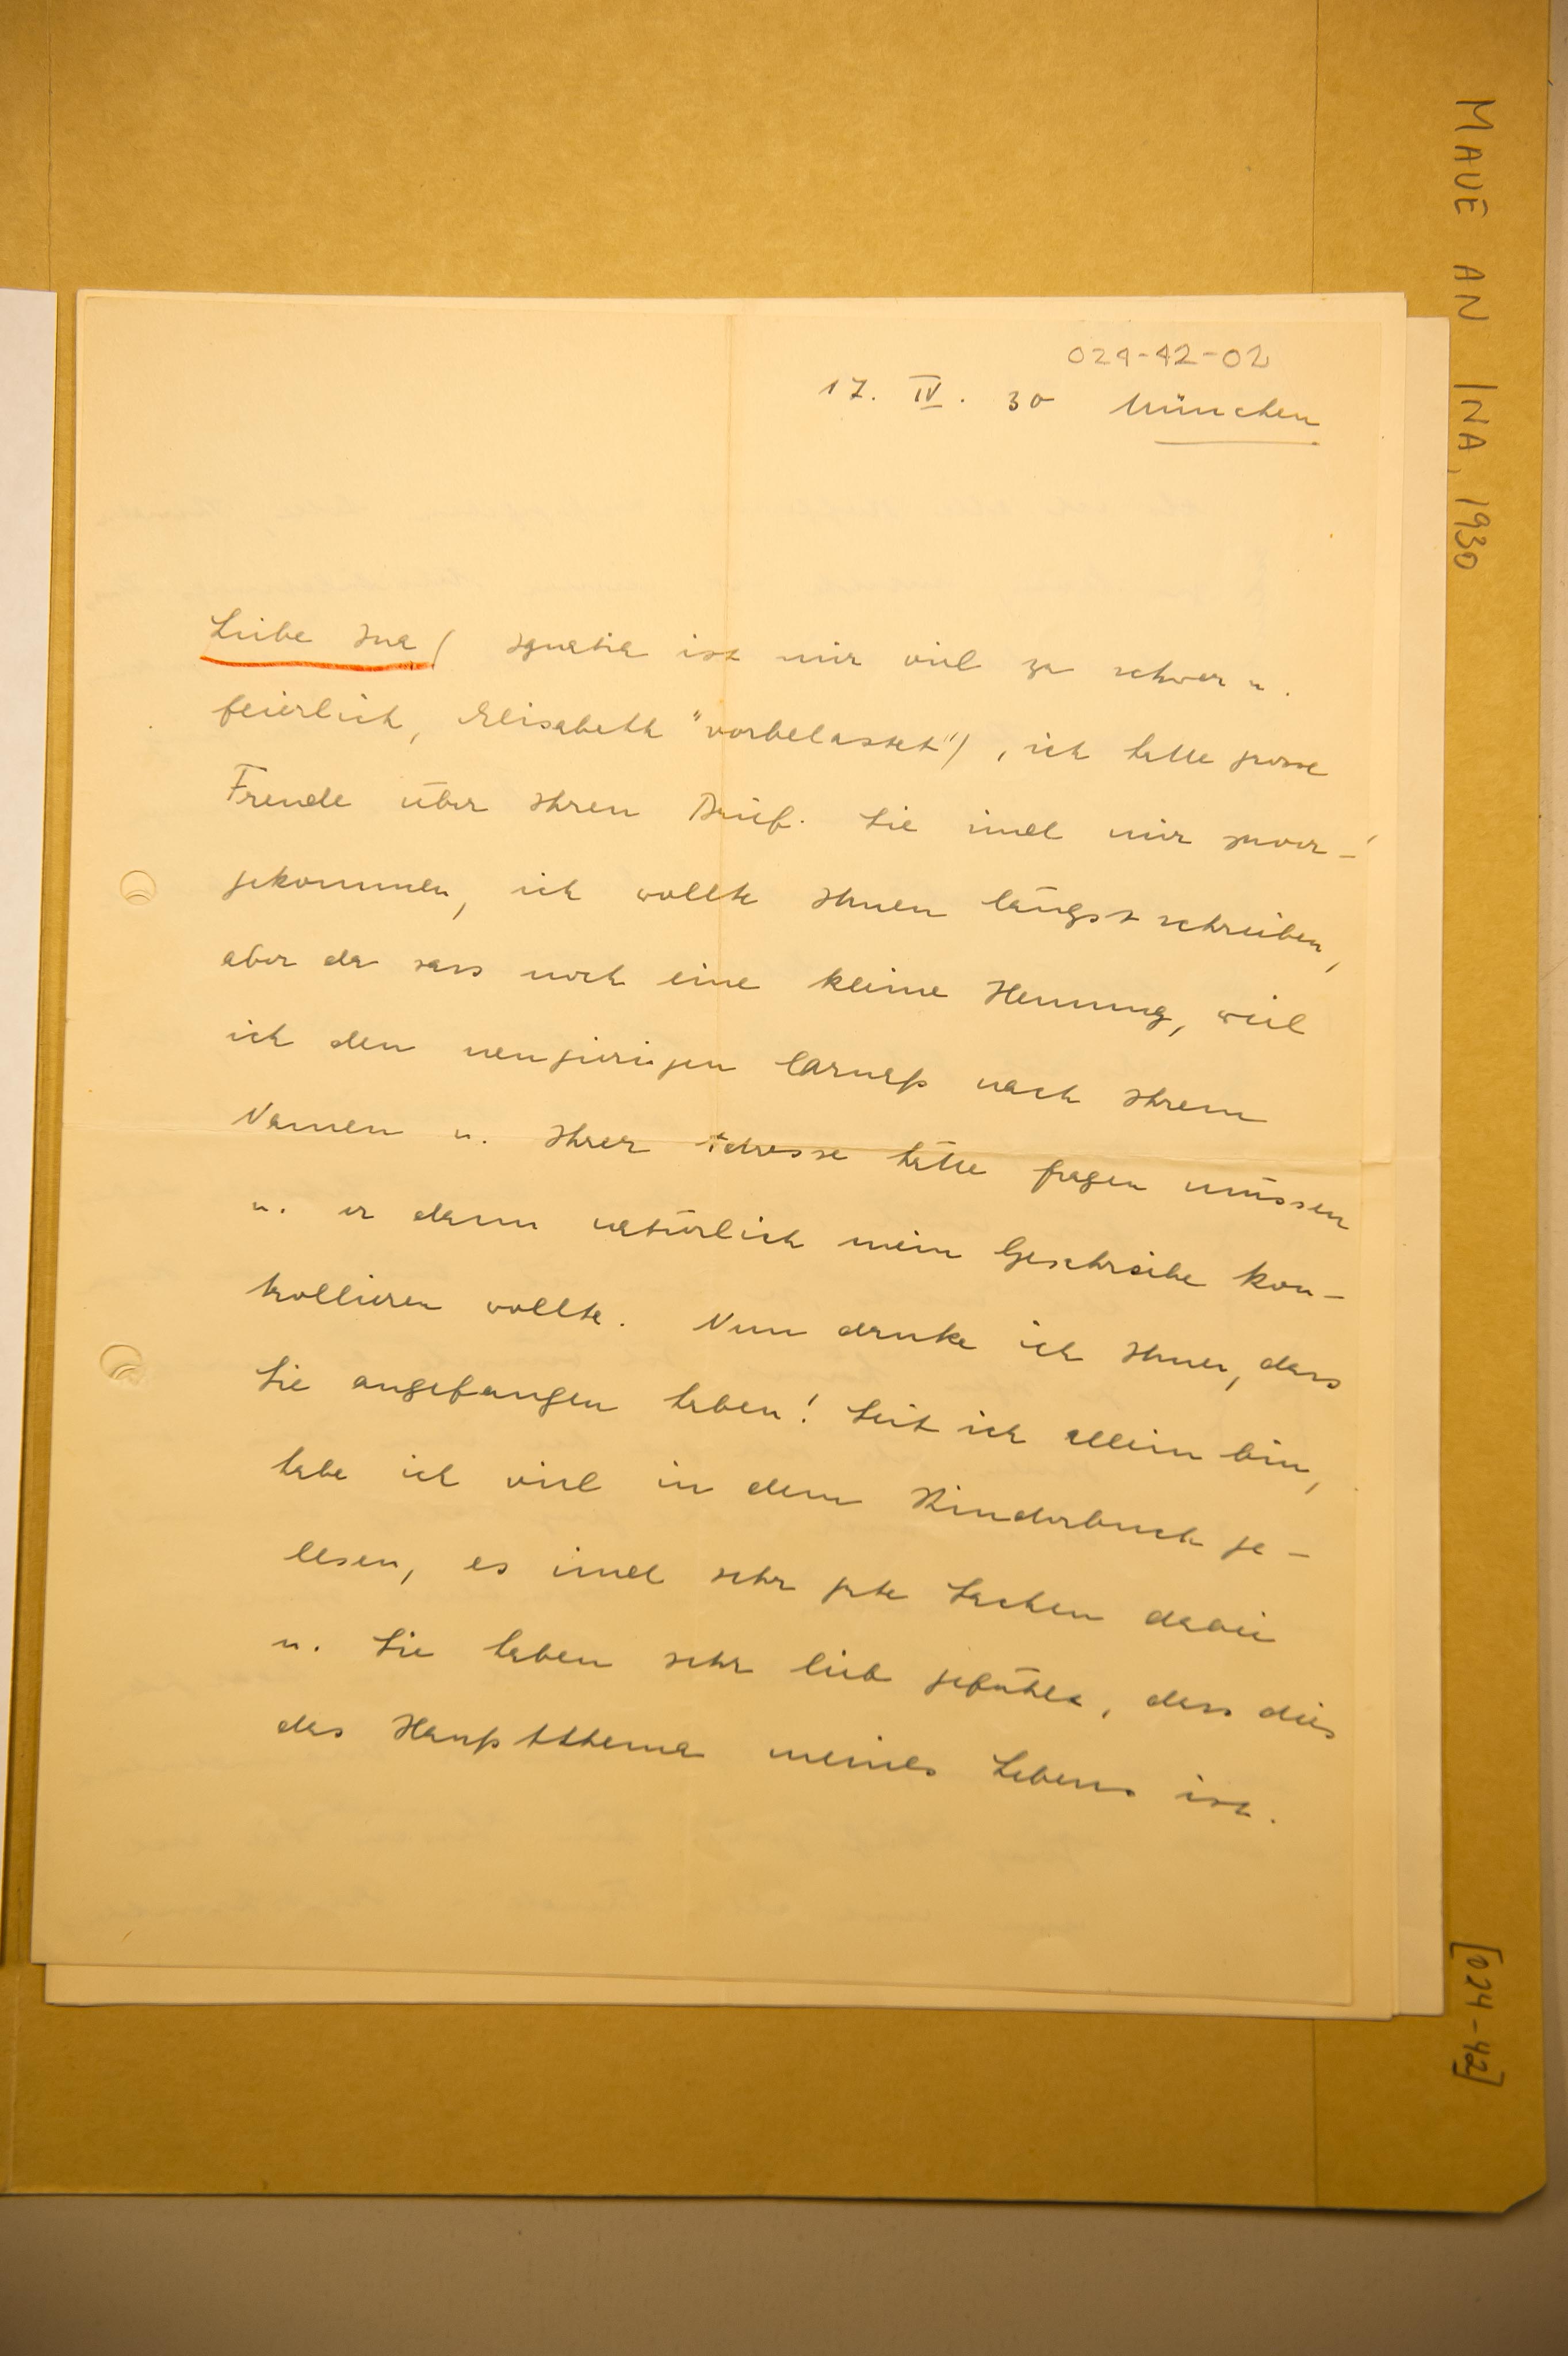 MAUÉ AN INA, 1930
[024-42]
024-42-02
17. IV. 30 München
Liebe Ina ( Ignatia ist mir viel zu schwer u.
feierlich, Elisabeth "vorbelastet") , ich hatte grosse
Freude über Ihren Brief. Sie sind mir zuvor-
gekommen, ich wollte Ihnen längst schreiben,
aber da sass noch eine kleine Hemmung, weil
ich den neugierigen Carnap nach Ihrem
Namen u. Ihrer Adresse hätte fragen müssen
u. er dann natürlich mein Geschreibe kon-
trollieren wollte. Nun danke ich Ihnen, dass
Sie angefangen haben! Seit ich allein bin,
habe ich viel in dem Kinderbuch ge-
lesen, es sind sehr gute Sachen dabei
u. Sie haben sehr lieb gefühlt, dass dies
das Hauptthema meines Lebens ist.